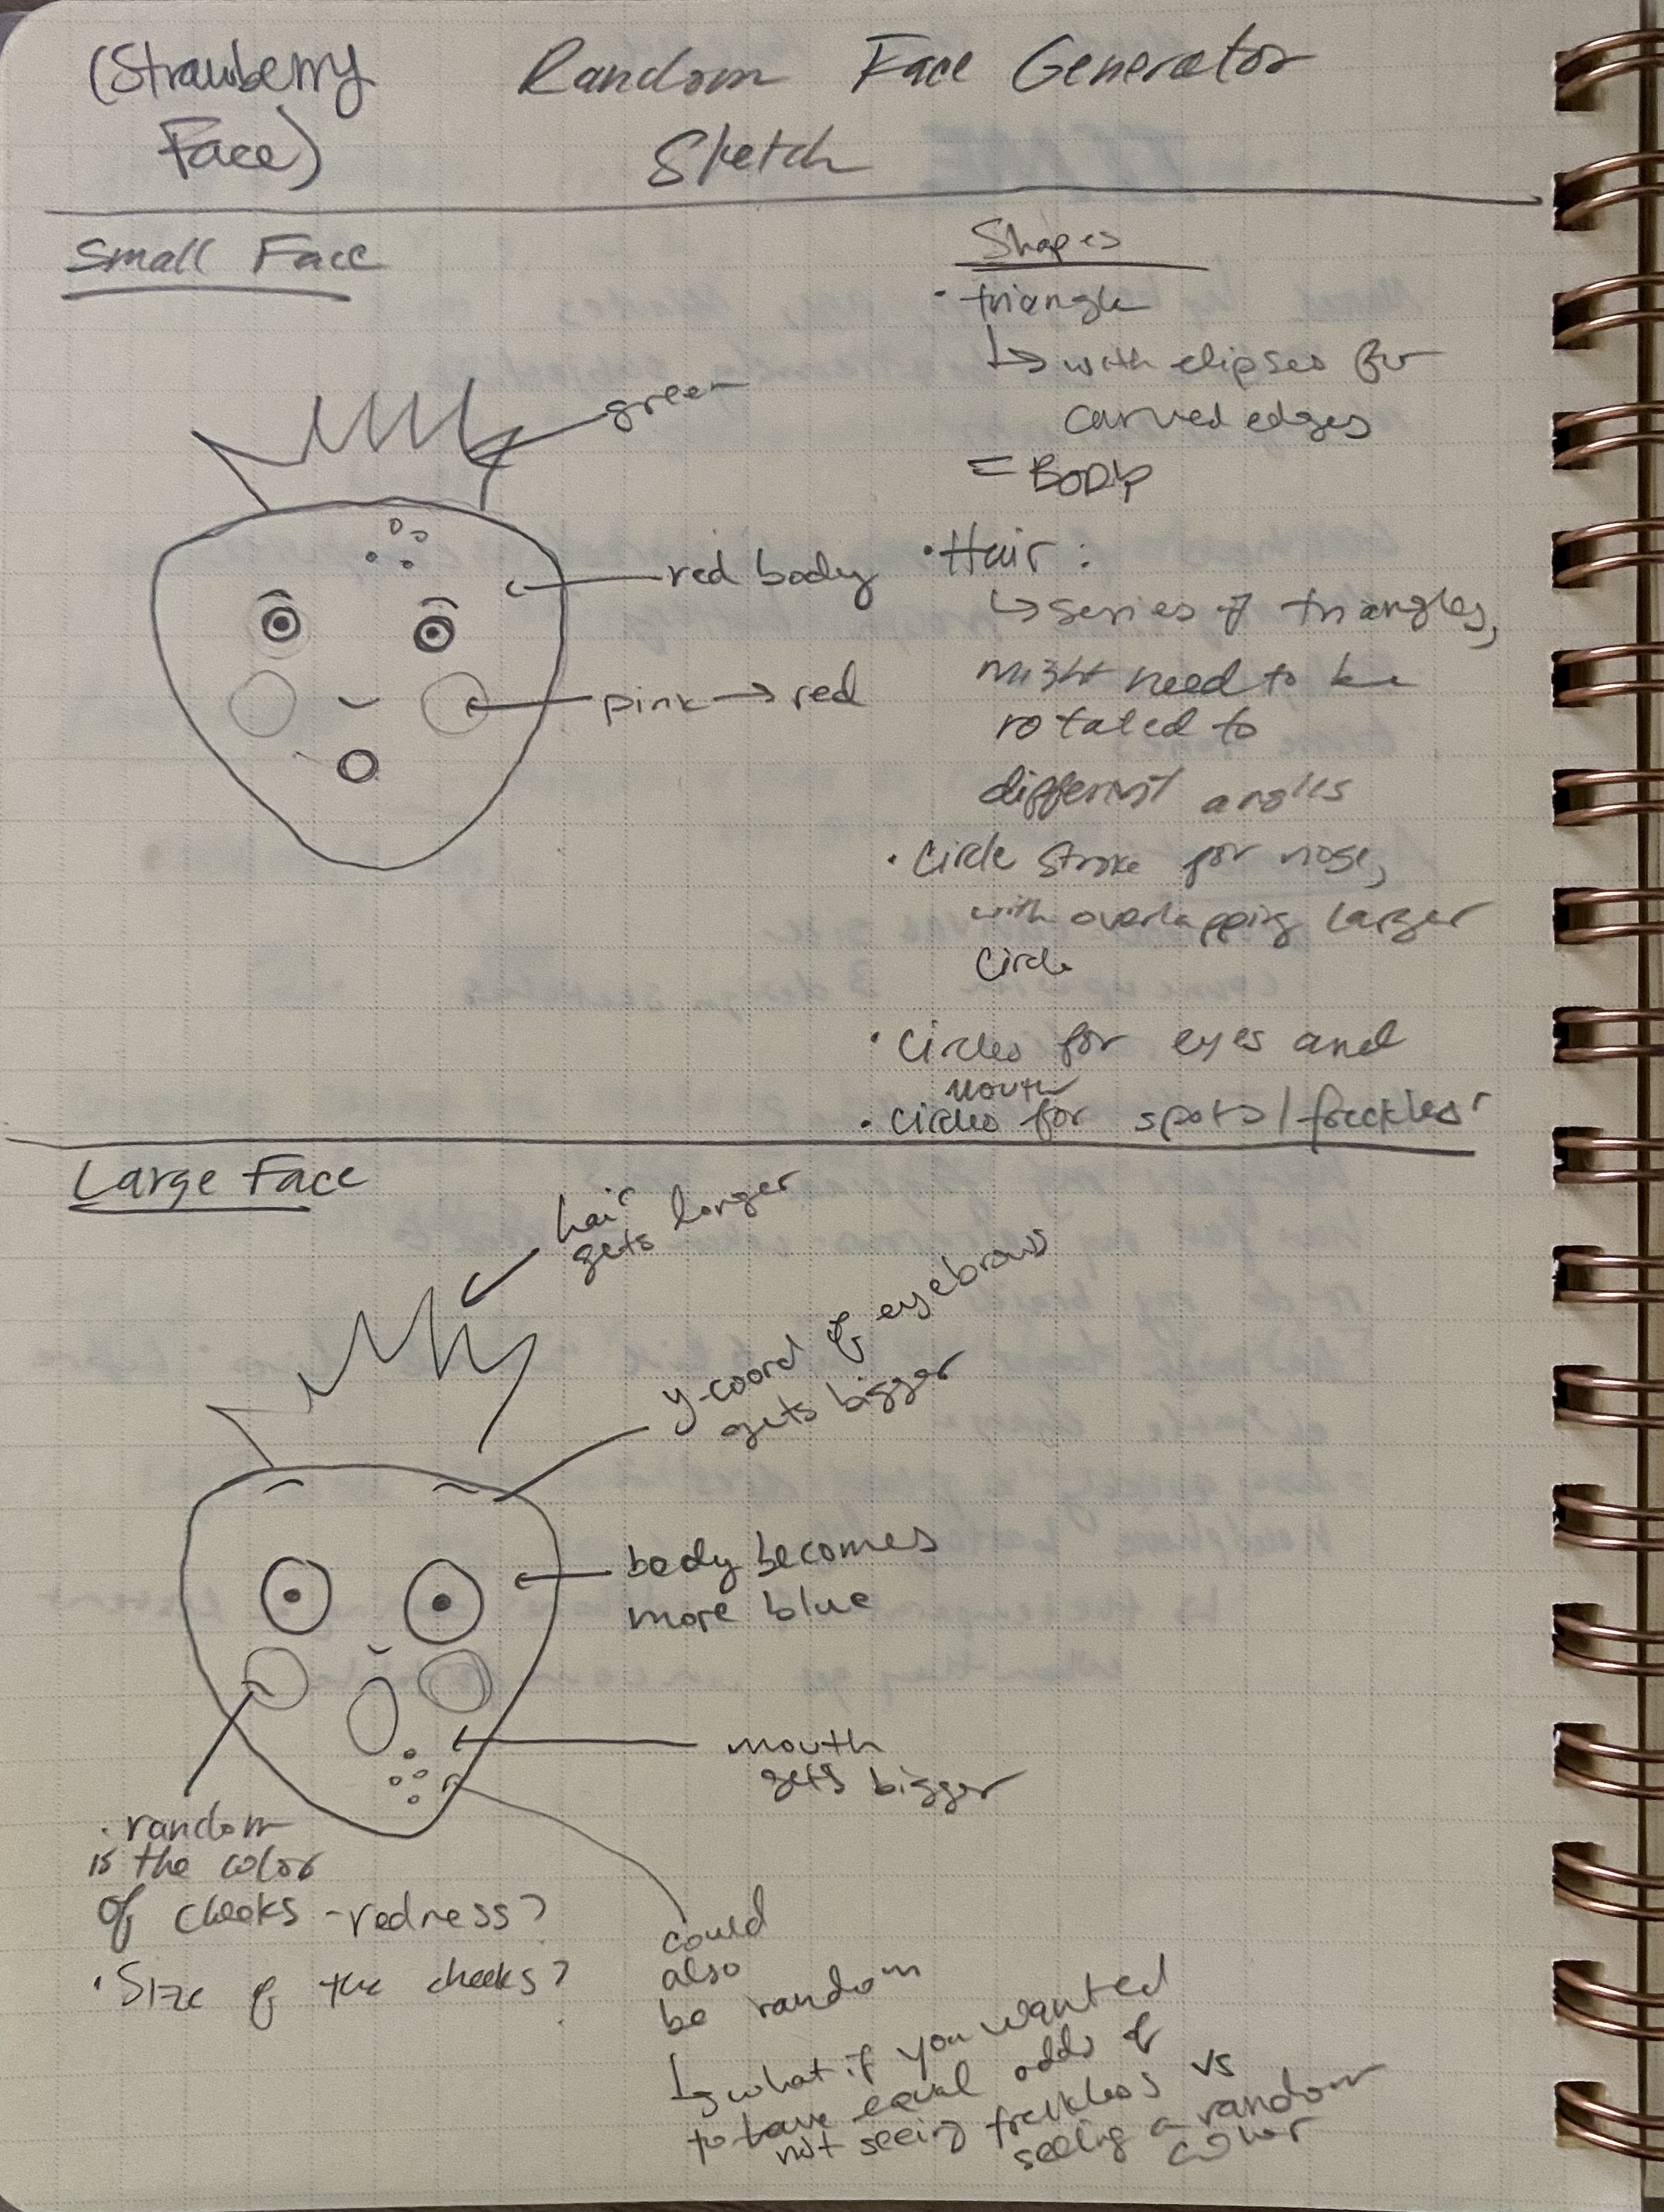 (Strawberry
Face)
Random Face Generator
Sketch
Small Face
green
red body
pink → red
Shapes
• triangle
↳ with elipses for
curved edges
= BODY
• Hair :
↳ series of triangles,
might need to be
rotated to
different angles
• Circle stroke for nose,
with overlapping larger
circle
• Circles for eyes and
mouth
• circles for spots/freckles
Large Face
hair
gets longer
y-coord of eyebrows
gets bigger
body becomes
more blue
mouth
gets bigger
• random
is the color
of cheeks - redness?
• Size of the cheeks?
could
also
be random
↳ what if you wanted
to have equal odds of
not seeing freckles vs
seeing a random
color